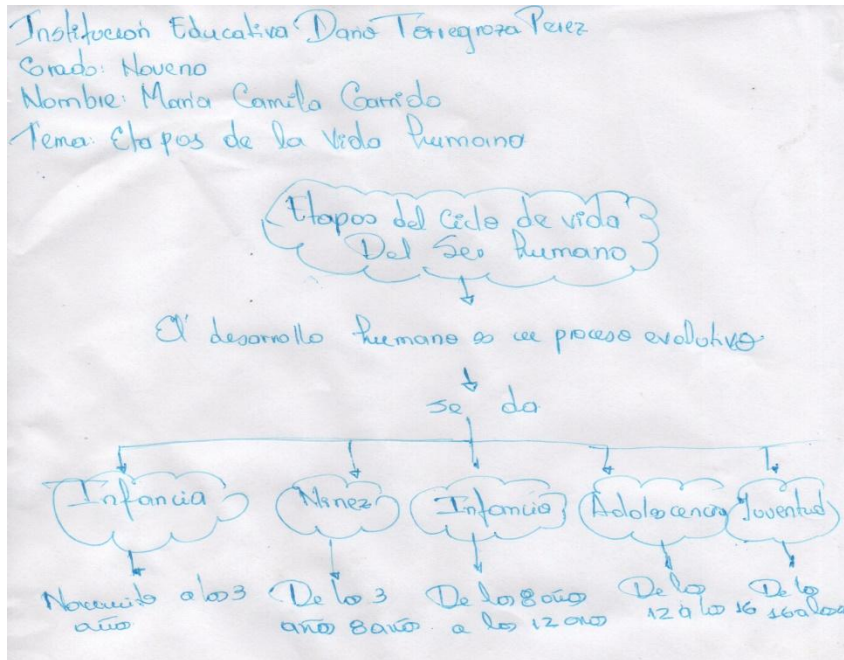 Institucion Educativa Dario Torregroza Perez
Grado: Noveno
Nombre: Maria Camila Garrido
Tema: Etapas de la Vida humana
Etapas del Ciclo de vida
Del Ser humano
El desarrollo humano es un proceso evolutivo
se da
Infancia Ninez Infancia Adolescencia Juventud
Nacimiento a los 3 De los 3 De los 8 años De los De los
año años 8 años a los 12 años 12 a los 16 16 a los